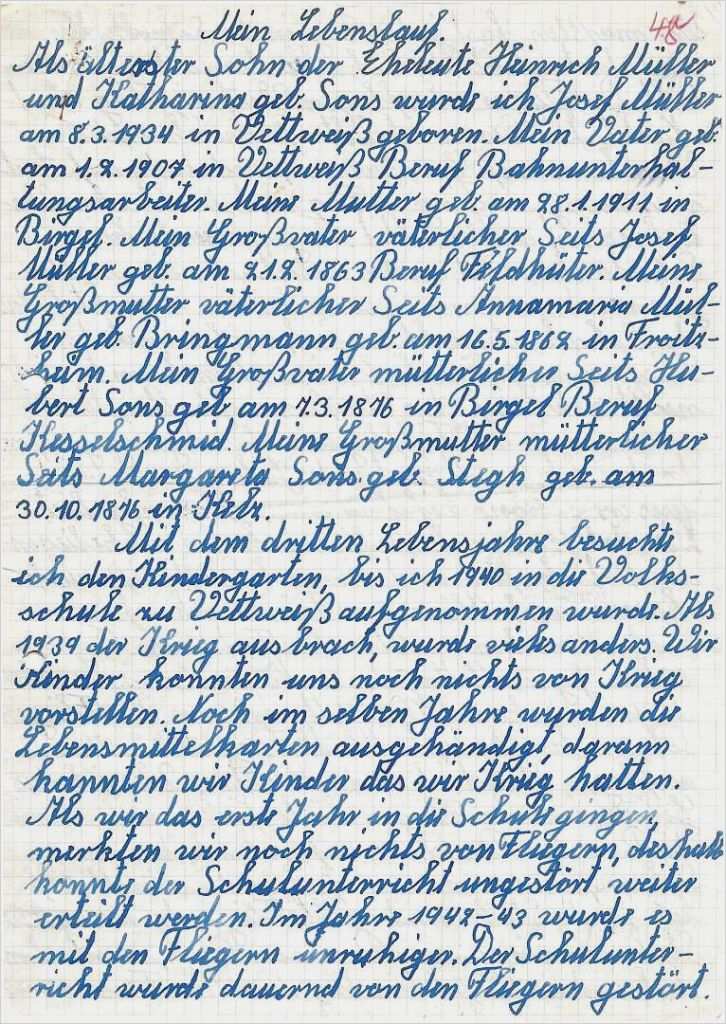 48
Mein Lebenslauf.
Als ältesster Sohn der Eheleute Heinrich Müller
und Katharina geb. Sons wurde ich Josef Müller
am 8.3.1934 in Vettweiß geboren. Mein Vater geb.
am 1.2.1907 in Vettweiß Beruf Bahnunterhal-
tungsarbeiter. Meine Mutter geb. am 28.1.1911 in
Birgel. Mein Großvater väterlicher Seits Josef
Müller geb. am 21.2.1863 Beruf Feldhüter. Meine
Großmutter väterlicher Seits Annamaria Mül-
ler geb. Bringmann geb. am 16.5.1862 in Froitz-
heim. Mein Großvater mütterlicher Seits Hu-
bert Sons geb am 7.3.1876 in Birgel Beruf
Kesselschmid. Meine Großmutter mütterlicher
Seits Margareta Sons geb. Stegh geb. am
30.10.1876 in Kelz.
Mit dem dritten Lebensjahre besuchte
ich den Kindergarten, bis ich 1940 in die Volks-
schule zu Vettweiß aufgenommen wurde. Als
1939 der Krieg ausbrach, wurde vieles anders. Wir
Kinder konnten uns noch nichts von Krieg
vorstellen. Noch im selben Jahre wurden die
Lebensmittelkarten ausgehändigt, darann
kannten wir Kinder das wir Krieg hatten.
Als wir das erste Jahr in die Schule gingen,
merkten wir noch nichts von Fliegern, deshalb
konnte der Schulunterricht ungestört weiter
erteilt werden. Im Jahre 1942-43 wurde es
mit den Fliegern unruhiger. Der Schulunter-
richt wurde dauernd von den Fliegern gestört.